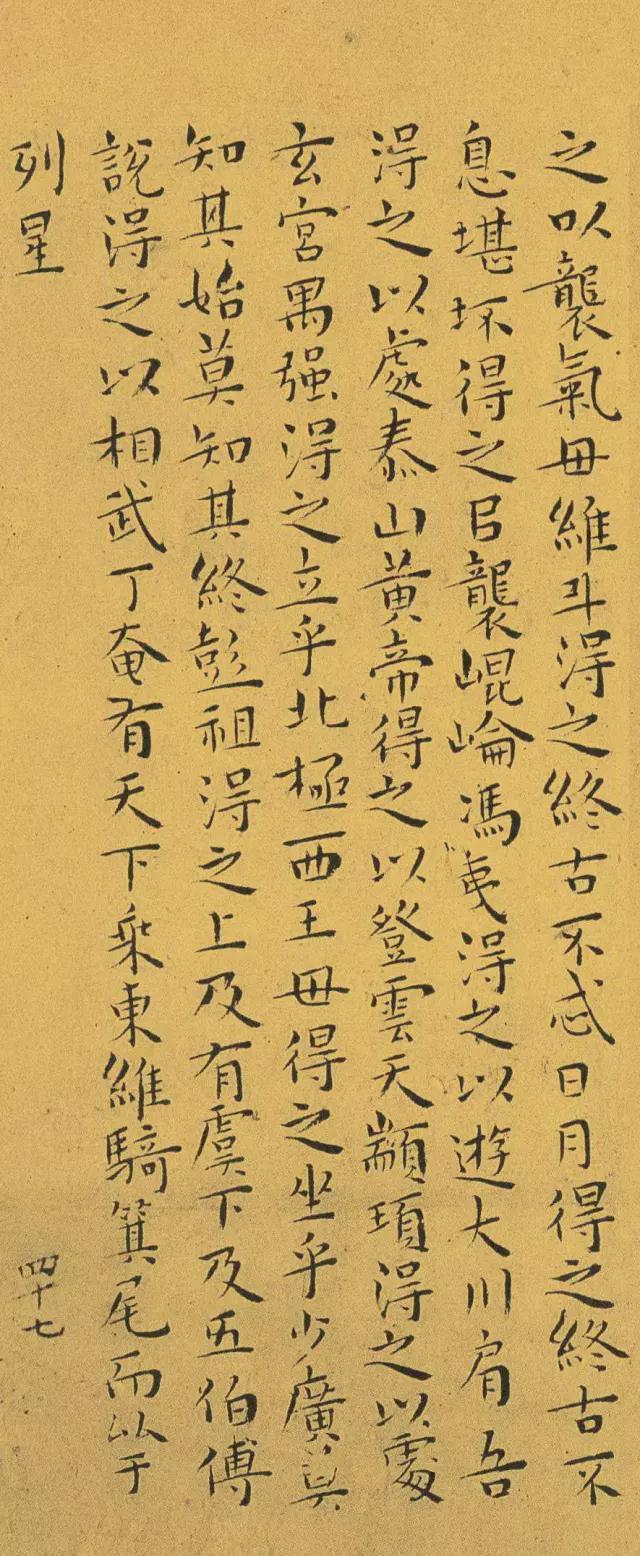 之以襲氣毋維斗得之終古不忒日月得之終古不
息堪坏得之㠯襲崐崘馮夷得之以遊大川肩吾
得之以處泰山黃帝得之以登雲天顓頊得之以處
玄宮禺强得之立乎北極西王毋得之坐乎少廣莫
知其始莫知其終彭祖得之上及有虞下及五伯傅
說得之以相武丁奄有天下乘東維騎箕尾而以于
列星
四十七